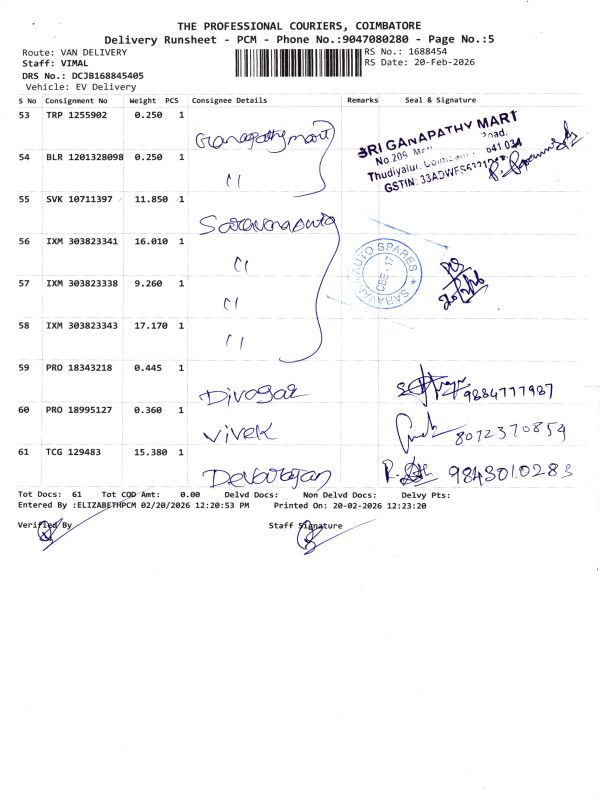 THE PROFESSIONAL COURIERS, COIMBATORE
Delivery Runsheet - PCM - Phone No.:9047080280 - Page No.:5
Route: VAN DELIVERY
RS No.: 1688454
Staff: VIMAL
RS Date: 20-Feb-2026
DRS No.: DCJB168845405
Vehicle: EV Delivery
S No Consignment No Weight PCS Consignee Details Remarks Seal & Signature
53 TRP 1255902 0.250 1 Ganapathy mart
SRI GANAPATHY MART
No.209, Road,
Thudiyalur, 641 034
GSTIN: 33ADWFS
54 BLR 1201328098 0.250 1 "
55 SVK 10711397 11.850 1 Saravana auto
56 IXM 303823341 16.010 1 "
SARAVANA AUTO SPARES ★ CBE - 17
57 IXM 303823338 9.260 1 "
58 IXM 303823343 17.170 1 "
59 PRO 18343218 0.445 1 Divagar 9884777987
60 PRO 18995127 0.360 1 Vivek 8072370854
61 TCG 129483 15.380 1 Devarajan 9843010283
Tot Docs: 61 Tot COD Amt: 0.00 Delvd Docs: Non Delvd Docs: Delvy Pts:
Entered By :ELIZABETHPCM 02/20/2026 12:20:53 PM Printed On: 20-02-2026 12:23:20
Verified By Staff Signature